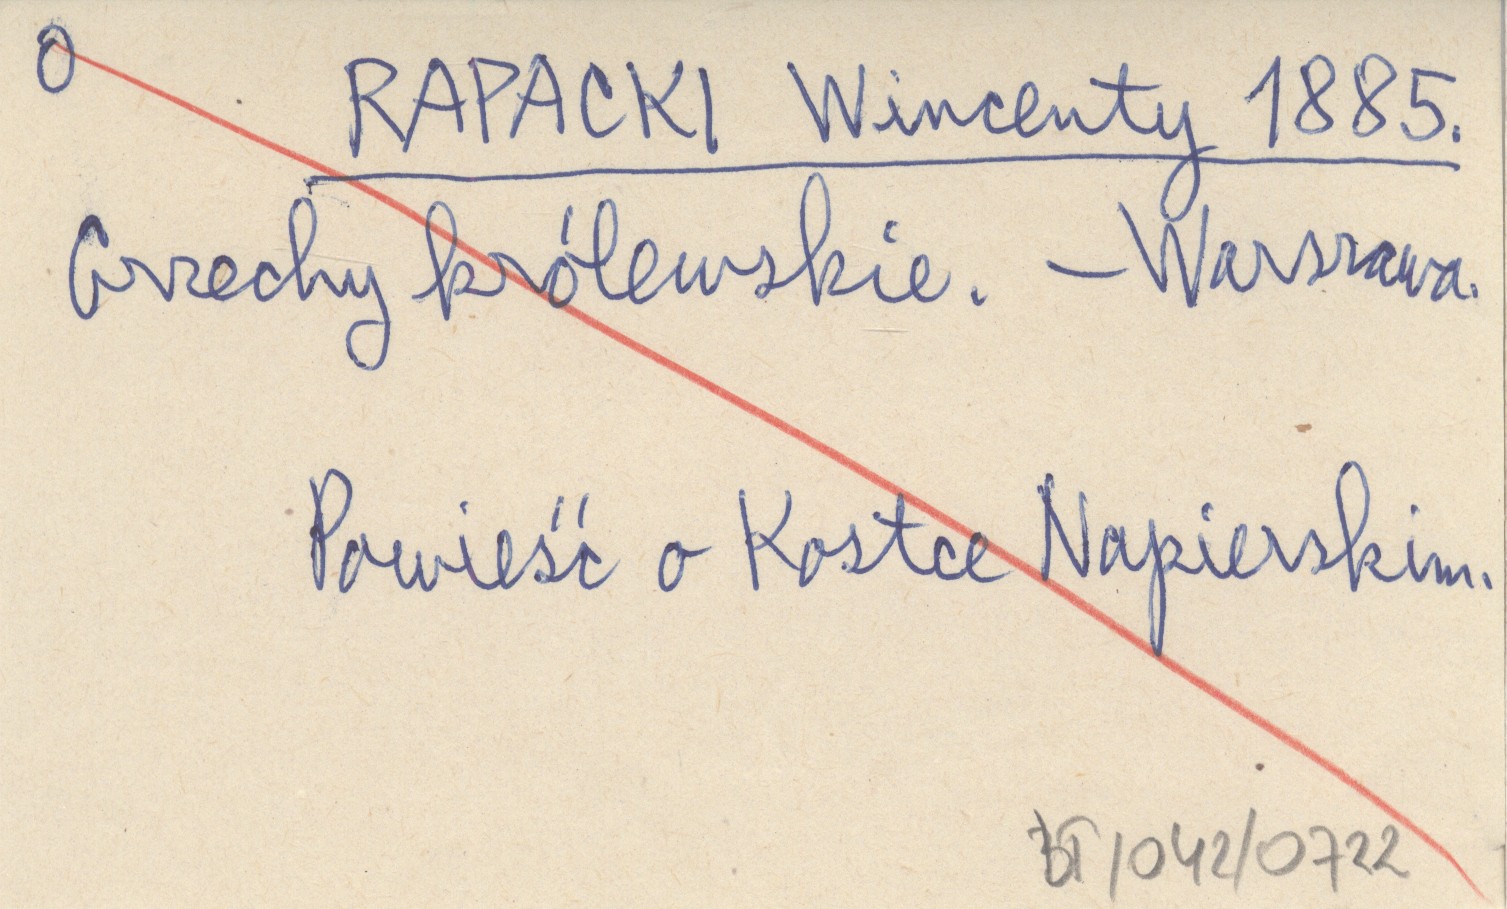 O
RAPACKI Wincenty 1885.
Grzechy królewskie. – Warszawa.
Powieść o Kostce Napierskim.
BT/042/0722